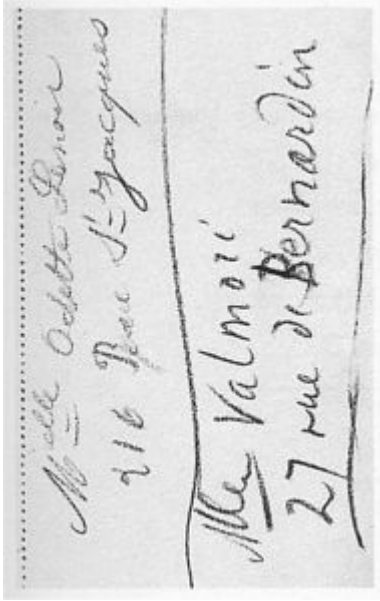 Melle Odette Lenoir
216 Rue St Jacques
Mlle Valmoré
27 rue de Bernardin